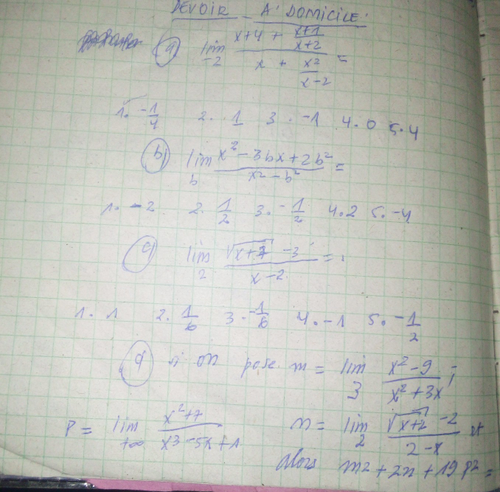 DEVOIR - A' DOMICILE:
a) lim -2 (x+4 + (x+1)/(x+2)) / (x + x²/(x-2)) =
1. -1/4 2. 1 3. -1 4. 0 5. 4
b) lim b (x² - 3bx + 2b²) / (x² - b²) =
1. -2 2. 1/2 3. -1/2 4. 2 5. -4
c) lim 2 (√(x+7) - 3) / (x-2) =
1. 1 2. 1/6 3. -1/6 4. -1 5. -1/2
d) si on pose m = lim 3 (x² - 9) / (x² + 3x) ;
P = lim +∞ (x² + 7) / (x³ - 5x + 1) n = lim 2 (√(x+2) - 2) / (2-x) et
Alors m² + 2n + 19 P² =